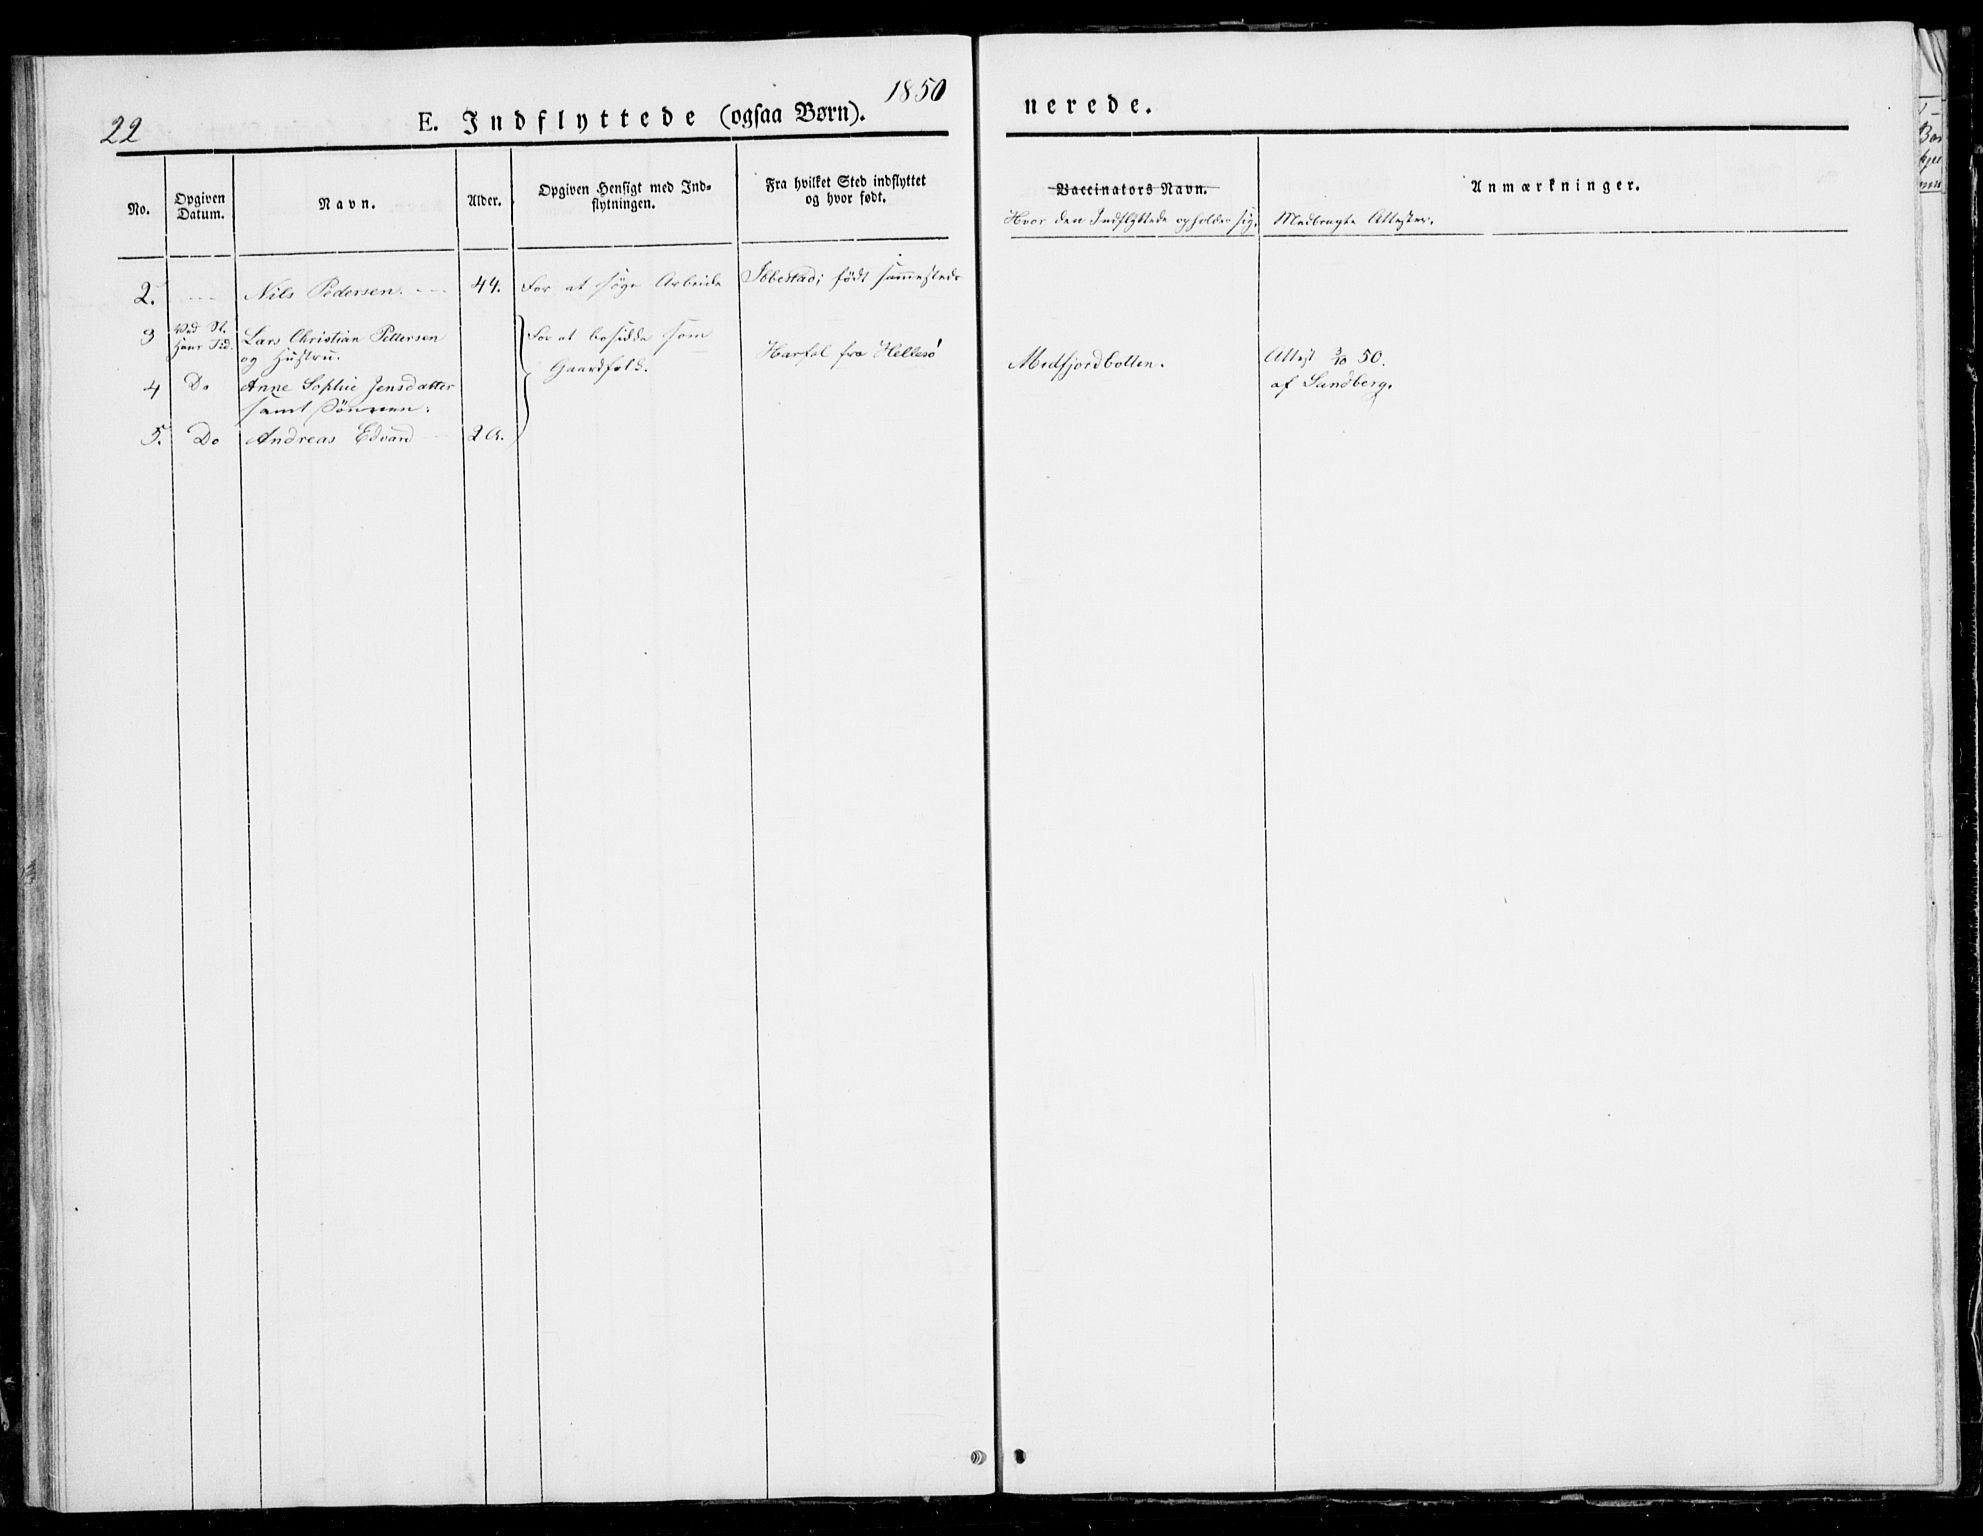 22
1850
E. Indflyttede (ogsaa Børn).
nerede.
No.
Opgiven
Datum.
Navn.
Alder.
Opgiven Hensigt med Ind-
flytningen.
Fra hvilket Sted indflyttet
og hvor født.
Vaccinators Navn.
Hvor den Indflyttede opholder sig.
Anmærkninger.
Medbragte Attester.
2. Nils Pedersen. 44. For at søge Arbeide Ibbestad; født sammesteds
3 Ved St. Lars Christian Pettersen For at bosidde som
Hans Tid. og Hustru. Gaardfolk. fra Hellesö Medfjordbotten. Attest 3/10 50.
4 Do Anne Sophie Jensdatter af Sandberg.
samt Sönnen:
5. Do Andreas Edvard 2 A.